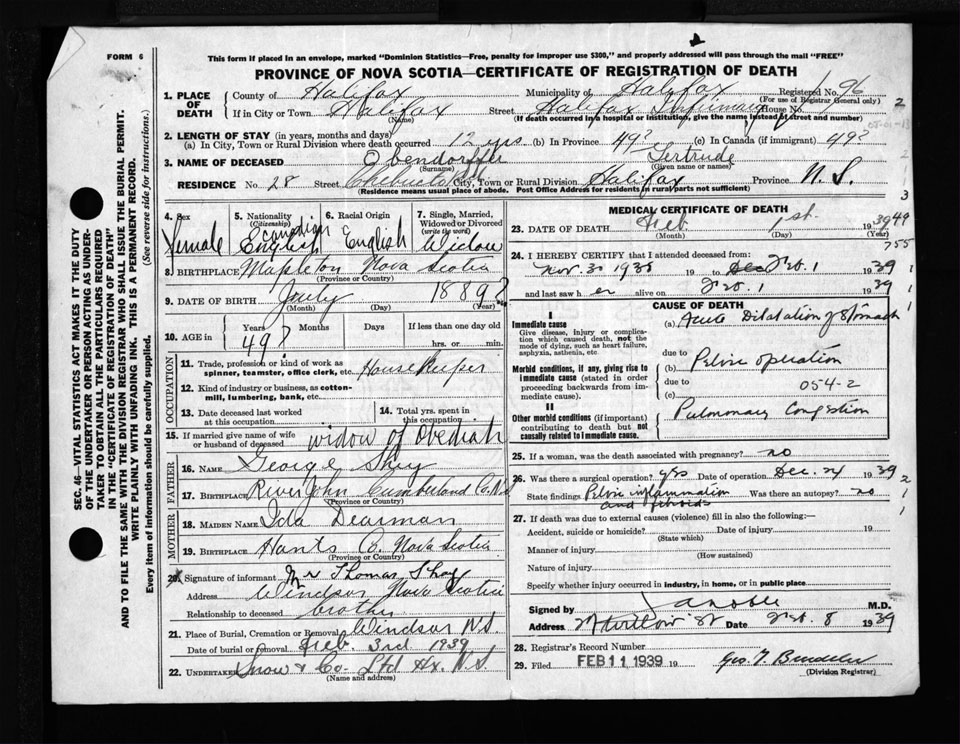 FORM 6
This form if placed in an envelope, marked "Dominion Statistics—Free, penalty for improper use $300," and properly addressed will pass through the mail "FREE"
PROVINCE OF NOVA SCOTIA—CERTIFICATE OF REGISTRATION OF DEATH
1. PLACE OF DEATH
County of Halifax Municipality of Halifax Registered No. 96
(For use of Registrar General only)
If in City or Town Halifax Street Halifax Infirmary House No.
(Name) (If death occurred in a hospital or institution, give the name instead of street and number)
2. LENGTH OF STAY (in years, months and days)
(a) In City, Town or Rural Division where death occurred 12 yrs. (b) In Province 49? (c) In Canada (if immigrant) 49?
3. NAME OF DECEASED Obendorffer Gertrude
(Surname) (Given name or names)
RESIDENCE No. 28 Street Chebucto Rd City, Town or Rural Division Halifax Province N.S.
(Residence means usual place of abode. Post Office Address for residents in rural parts not sufficient)
4. Sex Female
5. Nationality (Citizenship) Canadian English
6. Racial Origin English
7. Single, Married, Widowed or Divorced (write the word) Widow
8. BIRTHPLACE Mapleton Nova Scotia
(Province or Country)
9. DATE OF BIRTH July 1889?
(Month) (Day) (Year)
10. AGE in Years Months Days If less than one day old
49? hrs. or min.
OCCUPATION
11. Trade, profession or kind of work as spinner, teamster, office clerk, etc. Housekeeper
12. Kind of industry or business, as cotton-mill, lumbering, bank, etc.
13. Date deceased last worked at this occupation
14. Total yrs. spent in this occupation
15. If married give name of wife or husband of deceased widow of Obediah
FATHER
16. NAME George Shay
17. BIRTHPLACE River John Cumberland Co. N.S.
(Province or Country)
MOTHER
18. MAIDEN NAME Ida Dearman
19. BIRTHPLACE Hants Co. Nova Scotia
(Province or Country)
20. Signature of informant Mr Thomas Shay
Address Windsor Nova Scotia
Relationship to deceased brother
21. Place of Burial, Cremation or Removal Windsor N.S.
Date of burial or removal Feb. 3rd. 1939
22. UNDERTAKER Snow & Co. Ltd Hx. N.S.
(Name and address)
MEDICAL CERTIFICATE OF DEATH
23. DATE OF DEATH Feb. 1st. 1939
(Month) (Day) (Year)
49
755
24. I HEREBY CERTIFY that I attended deceased from:
Nov. 30 1938 19 to Dec Feb. 1 1939
and last saw her alive on Feb. 1 1939
CAUSE OF DEATH
I
Immediate cause
Give disease, injury or complication which caused death, not the mode of dying, such as heart failure, asphyxia, asthenia, etc
(a) Acute Dilatation of Stomach
due to
Morbid conditions, if any, giving rise to immediate cause (stated in order proceeding backwards from immediate cause).
(b) Pelvic operation
due to
(c) 054-2
II
Other morbid conditions (if important) contributing to death but not causally related to immediate cause.
Pulmonary Congestion
25. If a woman, was the death associated with pregnancy? no
26. Was there a surgical operation? yes Date of operation Dec. 24 1939
State findings Pelvic inflammation and fibroids Was there an autopsy? no
27. If death was due to external causes (violence) fill in also the following:—
Accident, suicide or homicide? Date of injury 19
(State which)
Manner of injury
(How sustained)
Nature of injury
Specify whether injury occurred in industry, in home, or in public place
Signed by M.D.
Address Date Feb. 8 1939
28. Registrar's Record Number
29. Filed FEB 11 1939 19
(Division Registrar)
SEC. 46—VITAL STATISTICS ACT MAKES IT THE DUTY
OF THE UNDERTAKER OR PERSON ACTING AS UNDER-
TAKER TO OBTAIN ALL THE PARTICULARS REQUIRED
IN THE "CERTIFICATE OF REGISTRATION OF DEATH"
AND TO FILE THE SAME WITH THE DIVISION REGISTRAR WHO SHALL ISSUE THE BURIAL PERMIT.
WRITE PLAINLY WITH UNFADING INK. THIS IS A PERMANENT RECORD.
Every item of information should be carefully supplied. (See reverse side for instructions.)